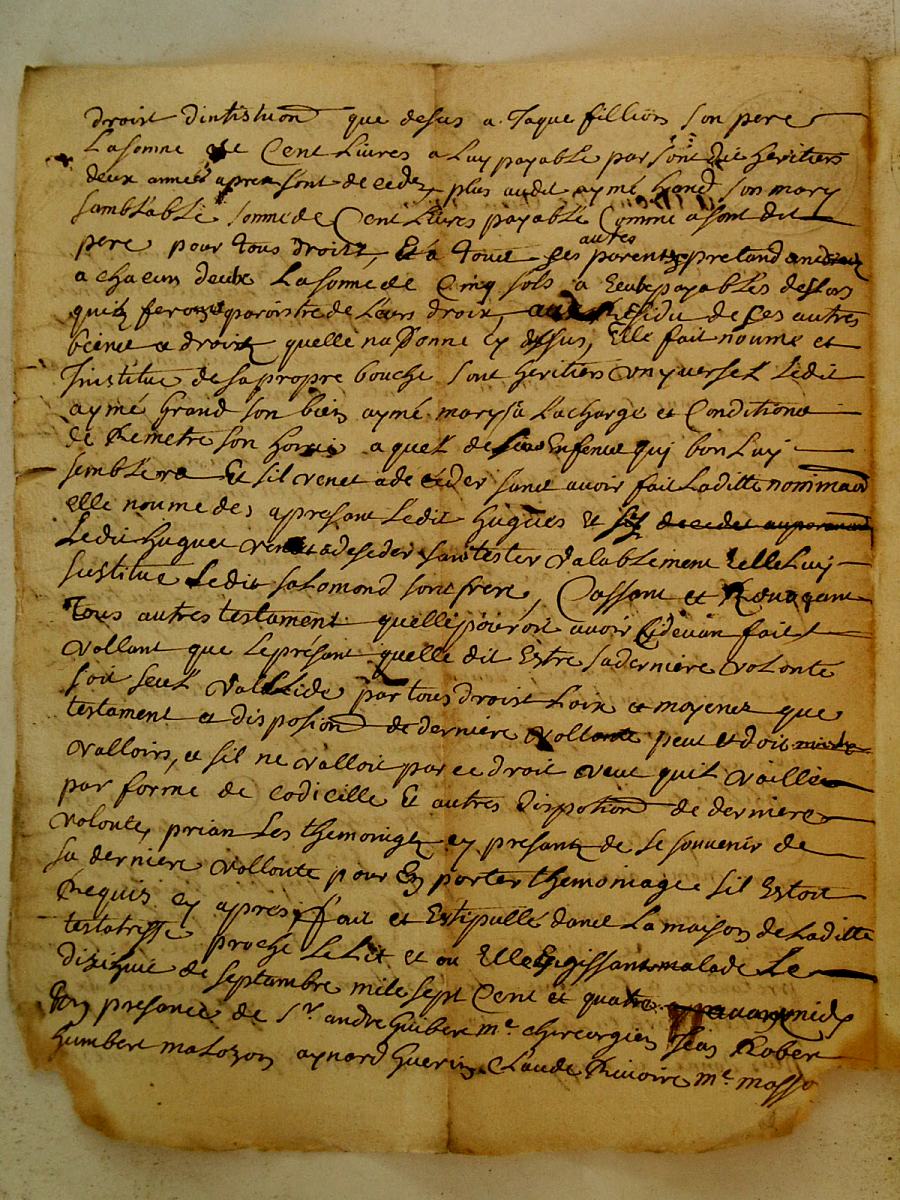 droist dintistuon que desus a Jaque fillion son pere
La somne de Cent Livres a Luy payable par sont dit heritiers
deux annes apres sont decedez, plus audit aymé Grand son mary
samblable somne de Cent Livres payable Comme a sont dit
pere pour tous droits, Et a toue ses autres parents pretandans droix
a chacun deux La somne de Cinq sols a Eux payables deslors
quilz feront paroistre de Leurs droix, Residu de ses autres
biens a droix quelle na Donne Cy dessus, Elle fait noume et
Jnstitue de sa propre bouche sont heritiers vnyversel Ledit
aymé Grand son bien aymé mary a La charge et Conditions
de Remetre son a quel de Enfence qui bon Luy
semblera Et sil venet a deceder sans avoir fait Laditte nommaon
elle noume des apresant Ledit hugues Et sil decedet auparavant
Ledit hugues venet a deseder sans tester valablement Elle Luy
sustitue Ledit salomond sont frere, Cassant et Revoquant
Tous autres testament quelle poiroit avoir Cidevan fait
vollant que Leprésant quelle dit Estre sa derniere volonte
soit seul vallide par tous droist Loix et moyenes que
testament et disposion de derniere vollonte peut et doit
valloirs, et sil ne valloit par ce droit veut quil vaille
par forme de codicille Et autres Dispotion de derniere
volonte, prian Les themoings ey presants de se souvenir de
sa derniere vollonte pour En porter themoniage sil Estoit
Requis cy apres, fait et Estipullé dance La maison de Laditte
testatrisse proche Le Lit et ou Elle Egissant malade Le
diziéme de septambre mile sept Cent et quatre apavant midy
En presance de Sr. andre Guibert me. chireurgien Jean Rober
humbert matozon aynard Guerin Claude Rivoire me. masso